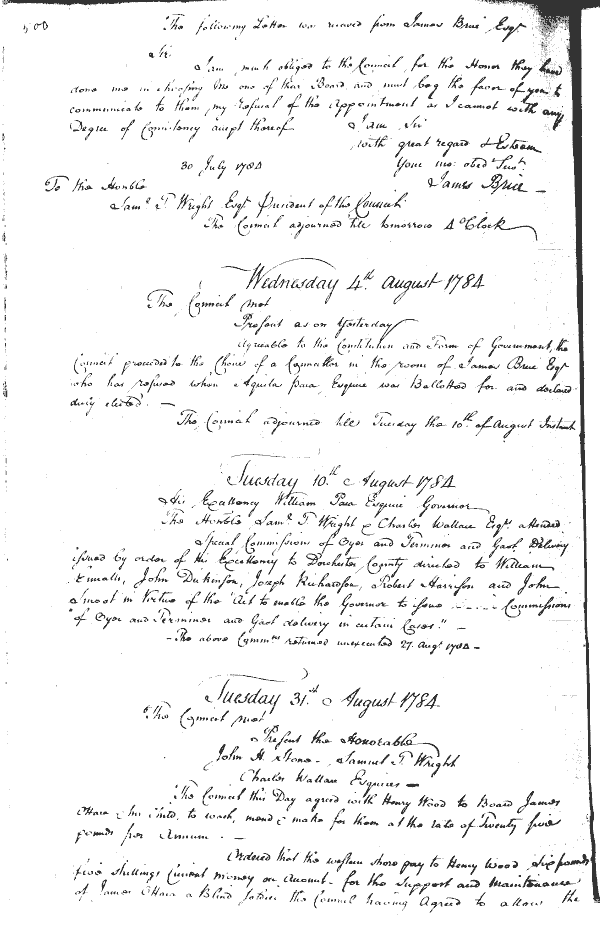 500
The following Letter was received from James Brice Esqr
Sir
I am much obliged to the Council, for the Honor they have
done me in choosing Me one of their Board, and must beg the favor of you to
communicate to them, my refusal of the Appointment as I cannot with any
Degree of Consistency accept thereof
I am Sir
with great regard & Esteem
Your mo: obed Servt
30 July 1784
James Brice —
To the Honble
Saml T. Wright Esqr President of the Council
The Council adjourned till tomorrow 4 o'Clock
Wednesday 4th August 1784
The Council met
Present as on Yesterday
Agreeable to the Constitution and Form of Government, the
Council proceeded to the Choice of a Councillor in the room of James Brice Esqr
who has refused when Aquila Paca, Esquire was Ballotted for and declared
duly elected. —
The Council adjourned till Tuesday the 10th of August Instant
Tuesday 10th August 1784
His Excellency William Paca Esquire Governor
The Honble Saml T. Wright & Charles Wallace Esqrs attended
Special Commissions of Oyer and Terminer and Gaol Delivery
issued by order of his Excellency to Dorchester County directed to William
Ennalls, John Dickinson, Joseph Richardson, Robert Harrison and John
Smoot in Virtue of the "Act to enable the Governor to issue ----- Commissions
"of Oyer and Terminer and Gaol delivery in certain Cases." —
- The above Commns returned unexecuted 27. Augt 1784 -
Tuesday 31st August 1784
The Council met
Present the Honorable
John H. Stone - Samuel T. Wright
Charles Wallace Esquires —
The Council this Day agreed with Henry Wood to Board James
OHara & his Child, to wash, mend & make for them at the rate of Twenty five
pounds per Annum. —
Ordered that the western shore pay to Henry Wood, Six pounds
five shillings Current money on Account - for the Support and Maintenance
of James OHara a Blind Soldier the Council having Agreed to allow the